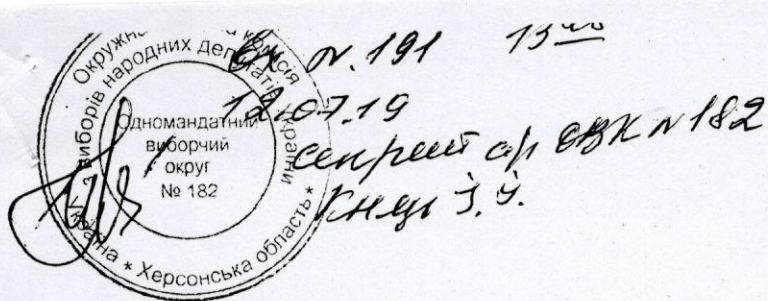 Окружна виборча комісія
з виборів народних депутатів України
Україна * Херсонська область *
Одномандатний
виборчий
округ
№ 182
Вх N. 191 13⁰⁰
12.07.19
секретар ОВК N 182